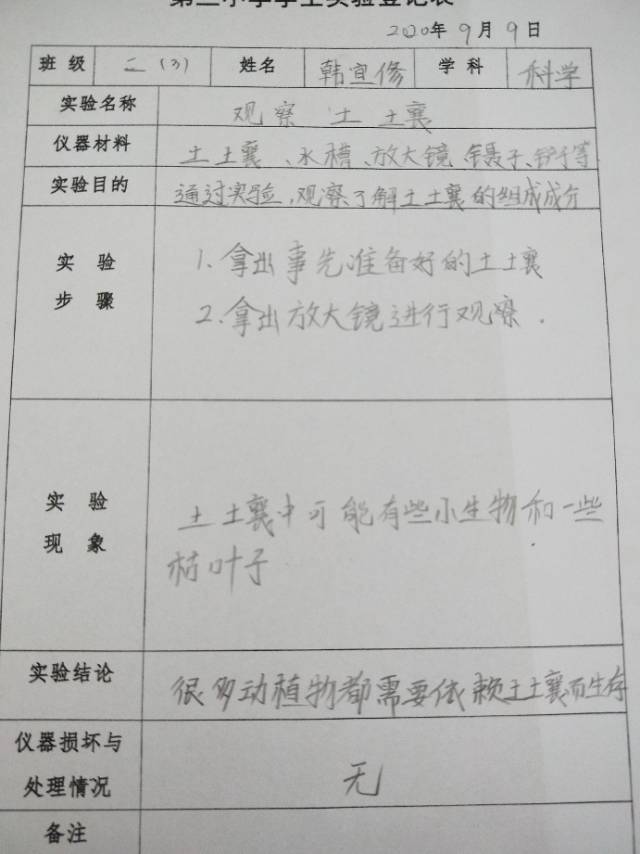 第二小学学生实验登记表
2020年9月9日
班级 二(3) 姓名 韩宜修 学科 科学
实验名称 观察土壤
仪器材料 土壤、水槽、放大镜、镊子、铲子等
实验目的 通过实验,观察了解土壤的组成成分
实验 1.拿出事先准备好的土壤
步骤 2.拿出放大镜进行观察.
实验 土壤中可能有些小生物和一些
现象 枯叶子
实验结论 很多动植物都需要依赖于土壤而生存
仪器损坏与
处理情况 无
备注